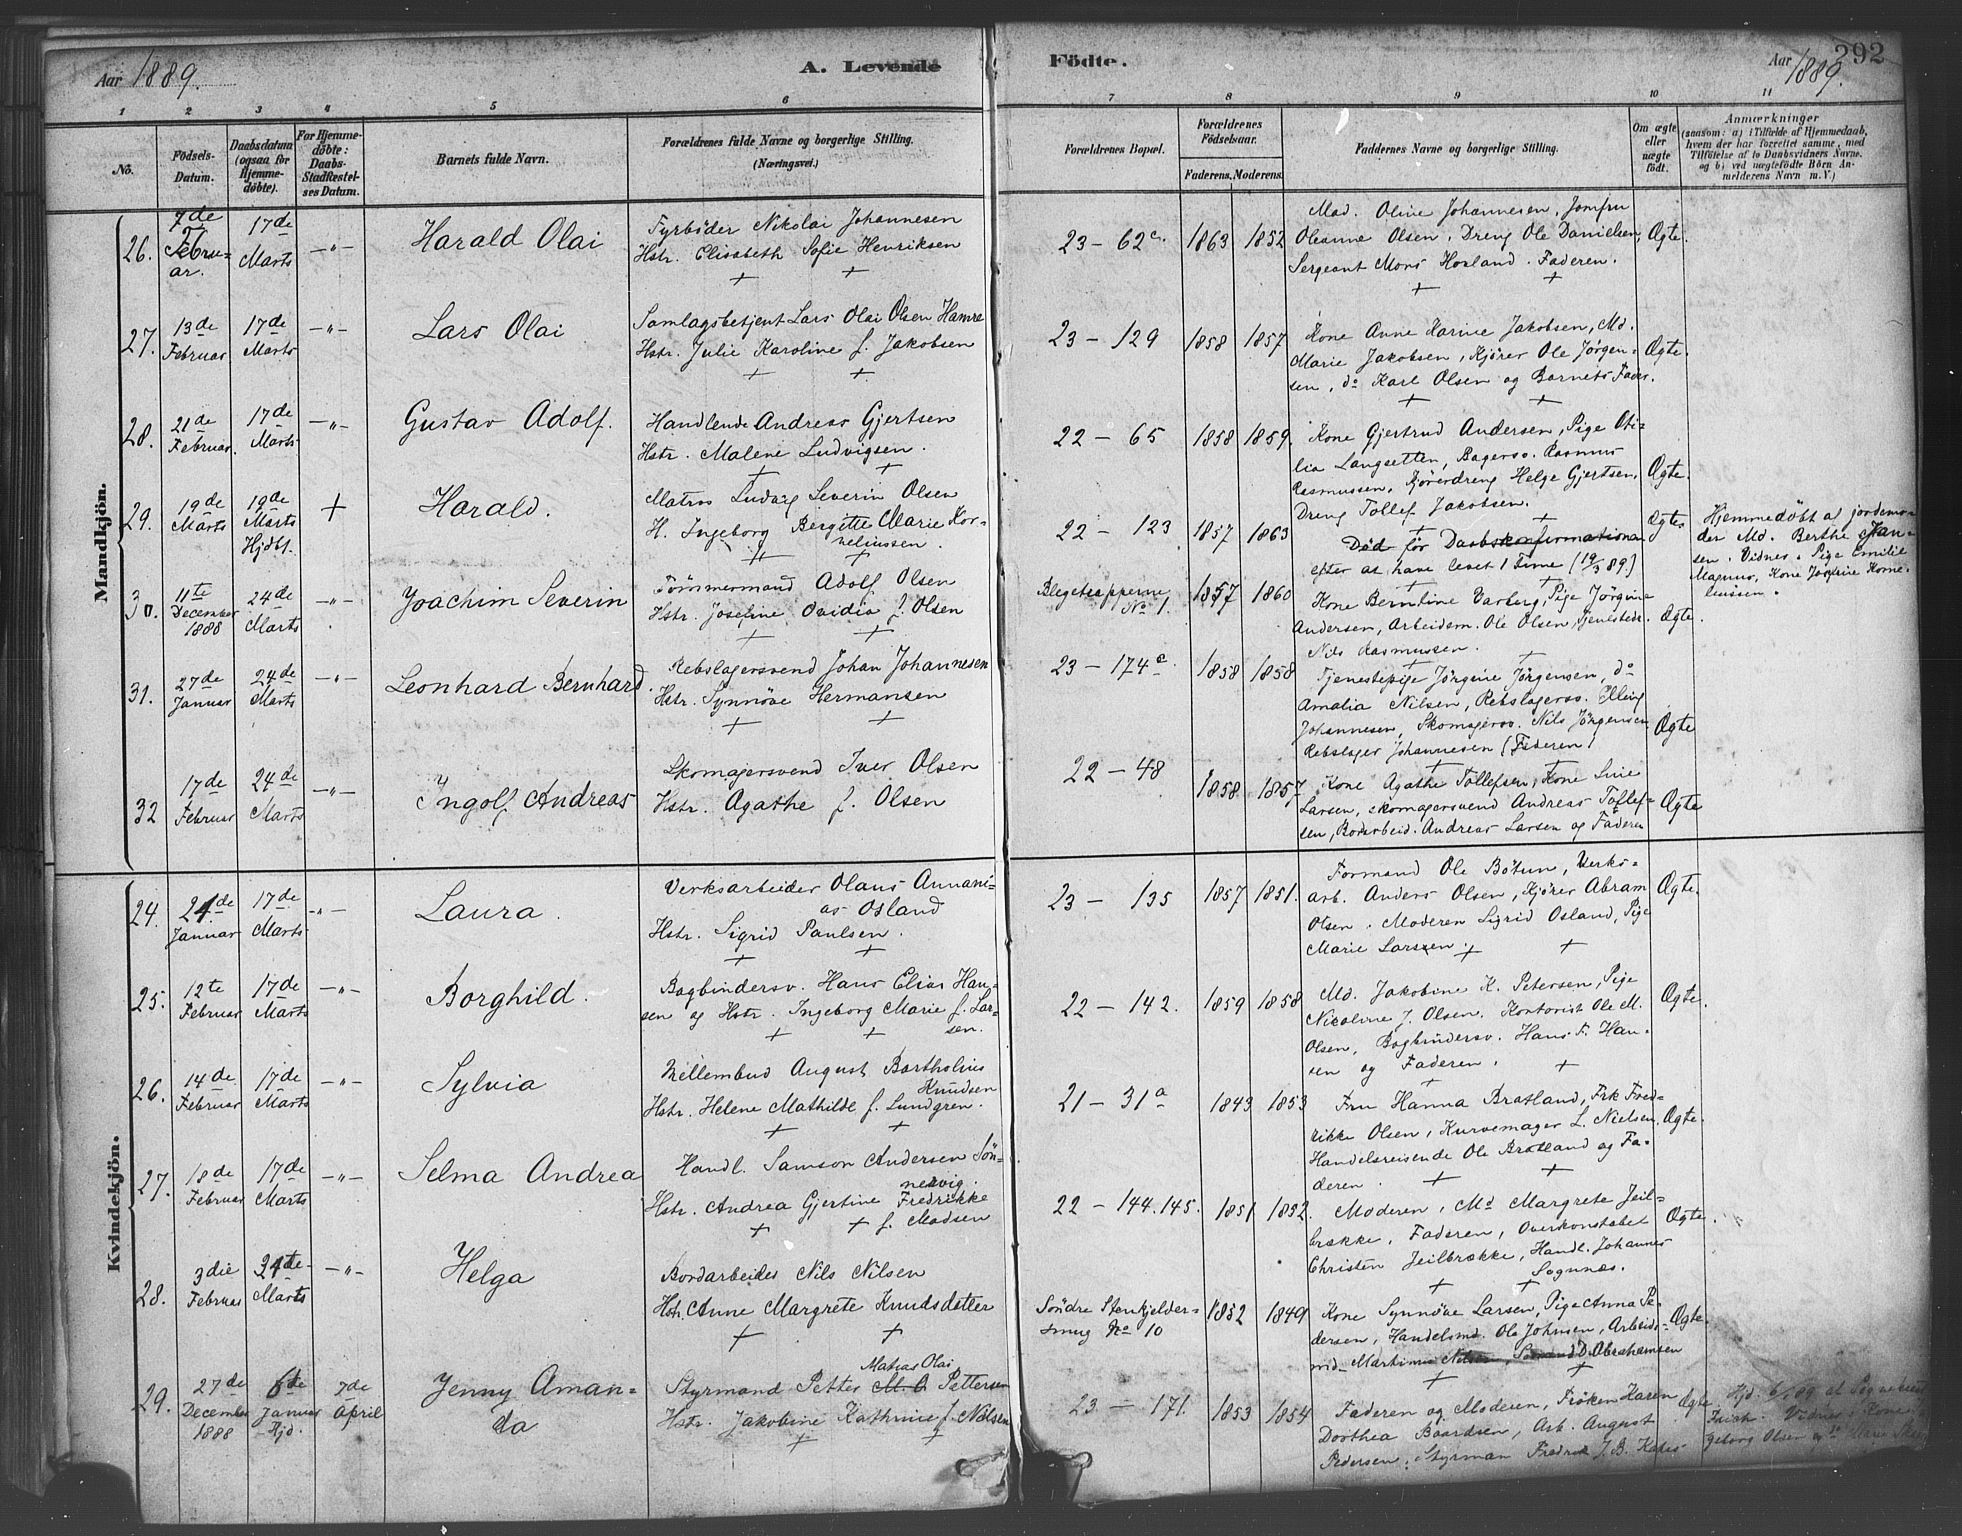 Aar 1889.
A. Levende
Födte.
Aar 1889.
292
1 2 3 4 5 6 7 8 9 10 11
No.
Födsels-
Datum.
Daabsdatum
(ogsaa for
Hjemme-
döbte).
For Hjemme-
døbte:
Daabs-
Stadfæstel-
ses Datum.
Barnets fulde Navn.
Forældrenes fulde Navne og borgerlige Stilling.
(Næringsvei.)
Forældrenes Bopæl.
Forældrenes
Födselsaar.
Faderens. Moderens.
Faddernes Navne og borgerlige Stilling.
Om ægte
eller
uægte
født.
Anmærkninger
(saasom: a) i Tilfælde af Hjemmedaab,
hvem der har forrettet samme, med
Tilföielse af to Daabsvidners Navne,
og b) ved uægtefödte Börn An-
melderens Navn m. V.)
Mandkjön.
26.
7de
Febru-
ar.
17de
Marts
—"—
Harald Olai
Fyrbøder Nikolai Johannesen
Hstr. Elisabeth Sofie Henriksen
+ +
23 — 62c.
1863 1852
Mad. Oline Johannesen, Jomfru
Oleanne Olsen, Dreng Ole Danielsen,
Sergeant Mons Hovland. Faderen.
+ +
Ægte.
27.
13de
Februar
17de
Marts
—"—
Lars Olai
Samlagsbetjent Lars Olai Olsen Hamre
Hstr. Julie Karoline f. Jakobsen
+ +
23 — 129
1858 1857
Kone Anne Karine Jakobsen, Md.
Marie Jakobsen, Kjører Ole Jørgen-
sen, do Karl Olsen og Barnets Fader.
+ +
Ægte.
28.
21de
Februar.
17de
Marts
—"—
Gustav Adolf.
Handlende Andreas Gjertsen
Hstr. Malene Ludvigsen.
+ +
22 — 65
1858 1859.
Kone Gjertrud Andersen, Pige Oti-
lia Langsetten, Bagersv. Rasmus
Rasmussen, Kjørerdreng Helge Gjertsen,
Dreng Tollef Jakobsen.
+ +
Ægte.
29.
19de
Marts
19de
Marts
Hjdbt.
+
Harald.
Matros Ludvig Severin Olsen
H. Ingeborg Bergitte Marie Kor-
neliussen.
+ +
22 — 123
1857 1863
Død før Daabskonfirmationen
efter at have levet 1 Time (19/3 89)
Ægte
Hjemmedöbt af Jordemo-
der Md. Berthe Han-
sen. Vidner. Pige Emilie
Magnus, Kone Jokine Korne-
liussen.
30.
11te
December
1888
24de
Marts
—"—
Joachim Severin
Tømmermand Adolf Olsen
Hstr. Josefine Ovidia f. Olsen
+ +
Blegetrapperne
No 1.
1857 1860
Kone Berntine Varberg, Pige Jørgine
Andersen, Arbeidem. Ole Olsen, Tjenestedr.
Nils Rasmussen.
+ +
Ægte.
31.
27de
Januar
24de
Marts
—"—
Leonhard Bernhard.
Rebslagersvend Johan Johannesen
Hstr. Synnøve Hermansen
+ +
23 — 174c.
1858 1858
Tjenestepige Jørgine Jørgensen, do
Amalia Nilsen, Rebslagersv. Elling
Johannesen, Skomagersv. Nils Jørgensen
Rebslager Johannesen (Faderen)
+ +
Ægte
32
17de
Februar
24de
Marts
—"—
Ingolf Andreas
Skomagersvend Iver Olsen
Hstr. Agathe f. Olsen
22 — 48
1858 1857
Kone Agathe Tollefsen, Kone Sine
Larsen, Skomagersvend Andreas Tollef-
sen, Bordarbeid. Andreas Larsen og Faderen
Ægte
Kvindekjön.
24.
21de
Januar
17de
Marts
—"—
Laura.
Verksarbeider Olaus Annani-
as Osland
Hstr. Sigrid Paulsen.
+ +
23 — 135
1857 1851.
Formand Ole Bøtun, Verks-
arb. Anders Olsen, Kjører Abram
Olsen. Moderen Sigrid Osland, Pige
Marie Larsen.
+ +
Ægte.
25.
12te
Februar
17de
Marts
—"—
Borghild.
Bogbindersv. Hans Elias Han-
sen og Hstr. Ingeborg Marie f. Lar-
sen.
+ +
22 — 142.
1859 1858
Md. Jakobine K. Petersen, Pige
Nikoline J. Olsen. Kontorist Ole M.
Olsen, Bogbindersv. Hans F. Han-
sen og Faderen.
+ +
Ægte.
26.
14de
Februar
17de
Marts
—"—
Sylvia
Mellembud August Bartholius
Knudsen
Hstr. Helene Mathilde f. Lundgren.
+ +
21 — 31a
1843 1853
Fru Hanna Bratland, Frk Fred-
rikke Olsen, Kurvemager L. Nielsen,
Handelsreisende Ole Bratland og Fa-
deren.
+ +
Ægte.
27.
18de
Februar
17de
Marts
—"—
Selma Andrea
Handl. Samson Andersen Søn-
nervig.
Hstr. Andrea Gjertine Fredrikke
f. Madsen
+ +
22 — 144.145.
1851 1852.
Moderen, Md Margrete Jeil-
brække, Faderen, Overkonstabel
Christen Jeilbrække, Handl. Johannes
Sognnæs.
+ +
Ægte.
28.
3die
Februar
24de
Marts
—"—
Helga
Bordarbeider Nils Nilsen
Hstr. Anne Margrete Knudsdatter
+ +
Søndre Stenkjelder-
smug No 10
1852 1849
Kone Synnøve Larsen, Pige Anna Pe-
dersen, Handelsmd. Ole Johnsen, Arbeids-
md. Martinus D. Abrahamsen
+ +
Ægte.
29.
27de
December
1888
6de
Januar
Hjd.
7de
April
Jenny Aman-
da
Matias Olai
Styrmand Petter M. O Pettersen
Hstr. Jakobine Kathrine f. Nilsen
+ +
23 — 171.
1853 1854
Faderen og Moderen, Frøken Karen
Dorthea Baardsen, Arb. August
Pedersen, Styrman Fredrik J. B.
Ægte
Hjd. 6/1 89 af
Vidner: Kone
Olsen og do Marie